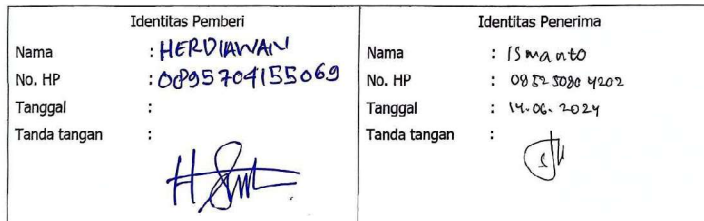 Identitas Pemberi
Nama : HERDIAWAN
No. HP : 0895704155069
Tanggal :
Tanda tangan :
Identitas Penerima
Nama : Ismanto
No. HP : 0852 5080 4202
Tanggal : 14.06.2024
Tanda tangan :